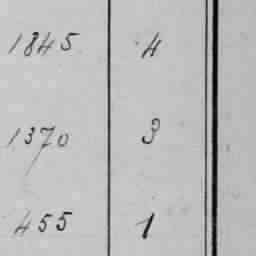 1845 4
1370 3
455 1